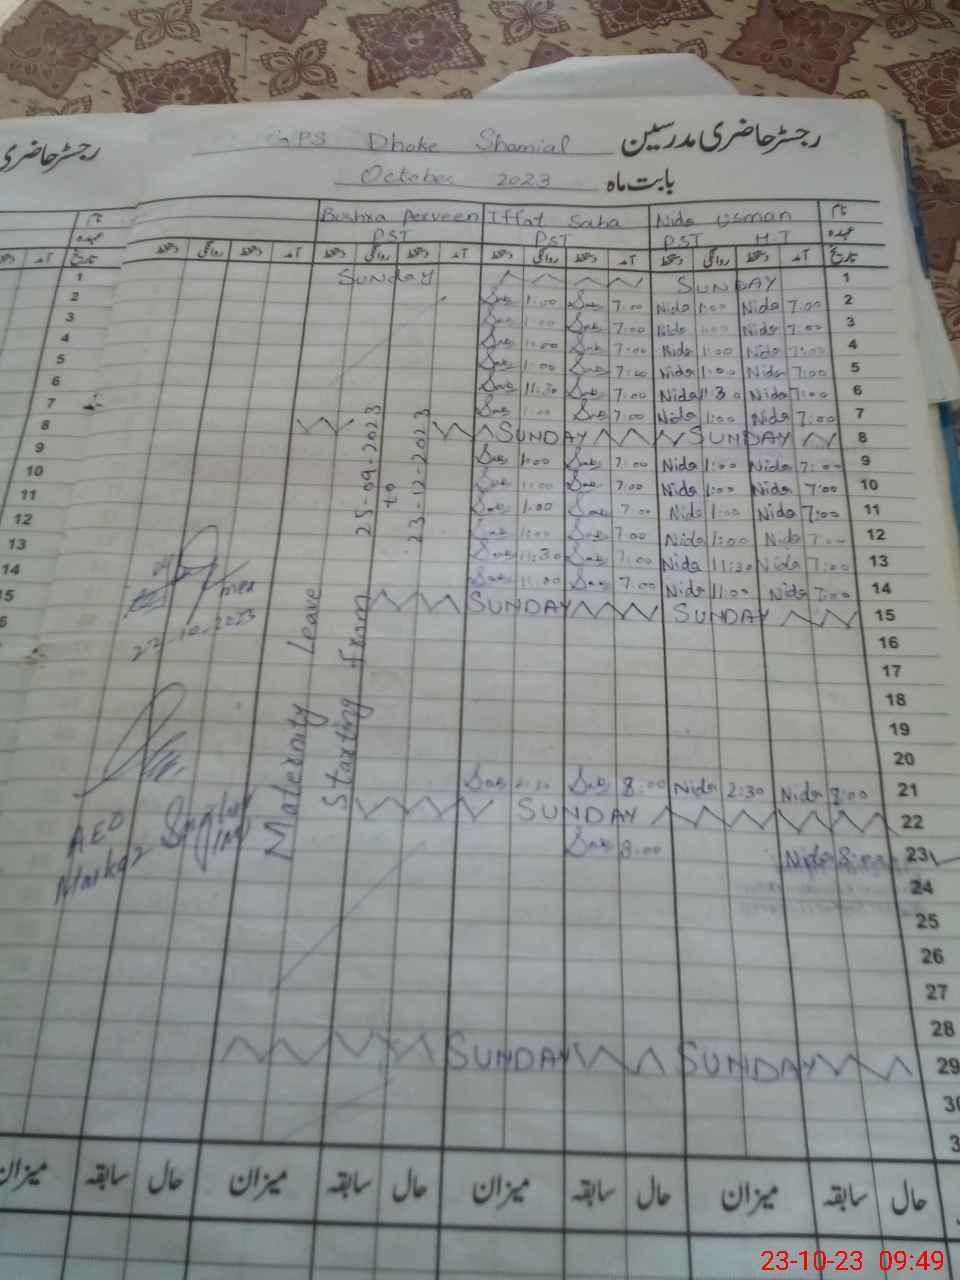 رجسٹر حاضری مدرسین GPS Dhoke Shamial
رجسٹر حاضری
بابت ماہ October 2023
نام Nida Usman Iffat Saba Bushra Perveen نام
عہدہ PST H.T PST PST عہدہ
تاریخ آمد دستخط روانگی دستخط آمد دستخط روانگی دستخط آمد دستخط روانگی دستخط آمد دستخط روانگی دستخط تاریخ آمد دستخط
1 Sunday SUNDAY 1
2 Sab 1:00 Sab 7:00 Nida 1:00 Nida 7:00 2
3 Sab 1:00 Sab 7:00 Nida 1:00 Nida 7:00 3
4 Sab 1:00 Sab 7:00 Nida 1:00 Nida 7:00 4
5 Sab 1:00 Sab 7:00 Nida 1:00 Nida 7:00 5
6 Sab 11:30 Sab 7:00 Nida 11:30 Nida 7:00 6
7 Sab 1:00 Sab 7:00 Nida 1:00 Nida 7:00 7
8 SUNDAY SUNDAY 8
9 Sab 1:00 Sab 7:00 Nida 1:00 Nida 7:00 9
10 Sab 1:00 Sab 7:00 Nida 1:00 Nida 7:00 10
11 Sab 1:00 Sab 7:00 Nida 1:00 Nida 7:00 11
12 Sab 1:00 Sab 7:00 Nida 1:00 Nida 7:00 12
13 Sab 11:30 Sab 7:00 Nida 11:30 Nida 7:00 13
14 Sab 11:00 Sab 7:00 Nida 11:00 Nida 7:00 14
15 SUNDAY SUNDAY 15
16
17
18
19
20
Sab Sab 8:00 Nida 2:30 Nida 8:00 21
SUNDAY 22
Sab 8:00 Nida 8:00 23
24
25
26
27
28
SUNDAY SUNDAY 29
30
Maternity Leave
Starting From
25-09-2023
to
23-12-2023
22.10.2023
AEO
Markaz
حال سابقہ میزان حال سابقہ میزان حال سابقہ میزان
23-10-23 09:49